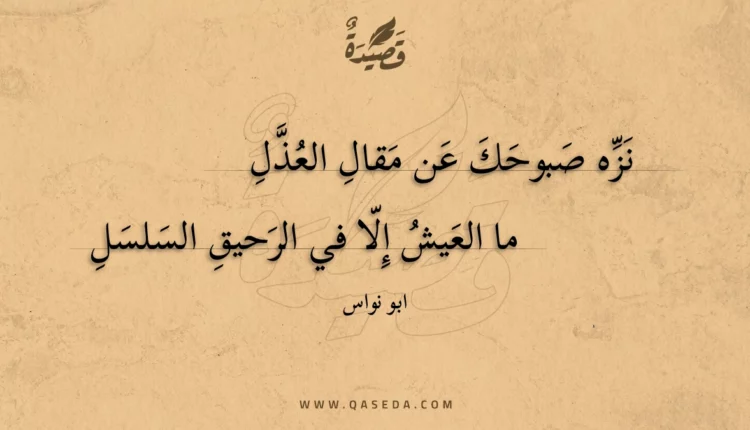 قَصِيدَةٌ
نَزِّه صَبوحَكَ عَن مَقالِ العُذَّلِ
ما العَيشُ إِلّا في الرَحيقِ السَلسَلِ
ابو نواس
WWW.QASEDA.COM